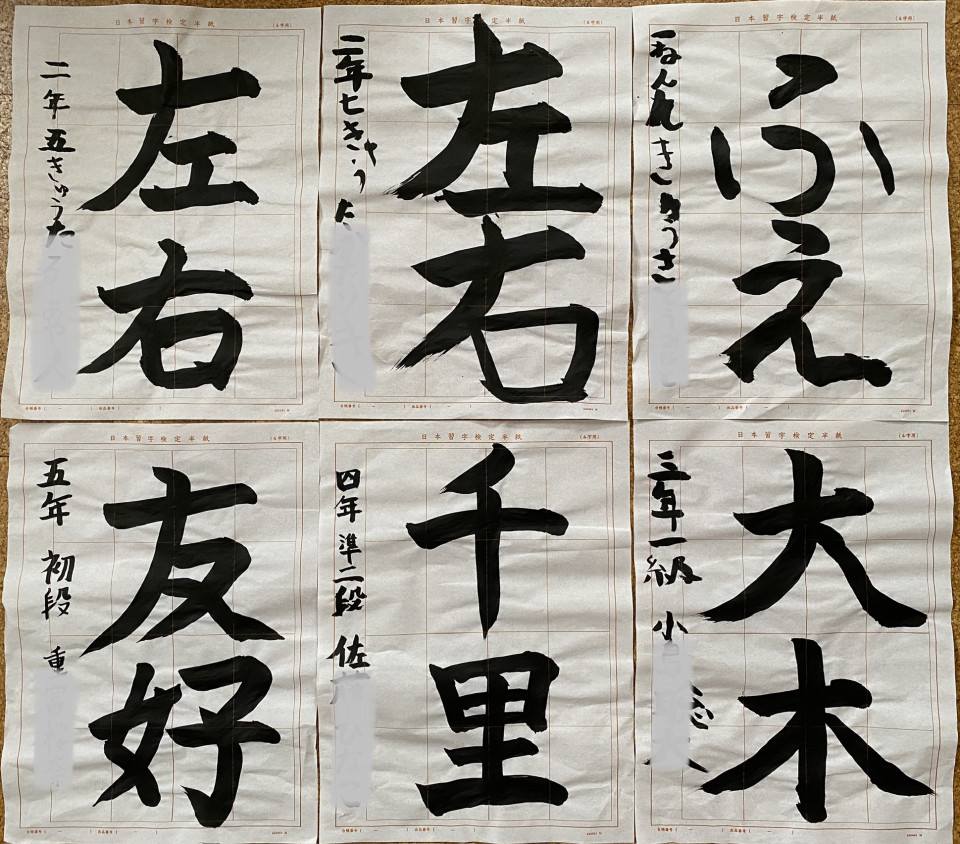 日本習字検定半紙
(6字用)
左右
二年 五きゅう た
日本習字検定半紙
(6字用)
左右
二年 七きゅう
日本習字検定半紙
(6字用)
ふえ
一ねん
日本習字検定半紙
(6字用)
友好
五年 初段 重
日本習字検定半紙
(6字用)
千里
四年 準二段 佐
日本習字検定半紙
(6字用)
大木
三年 一級 小